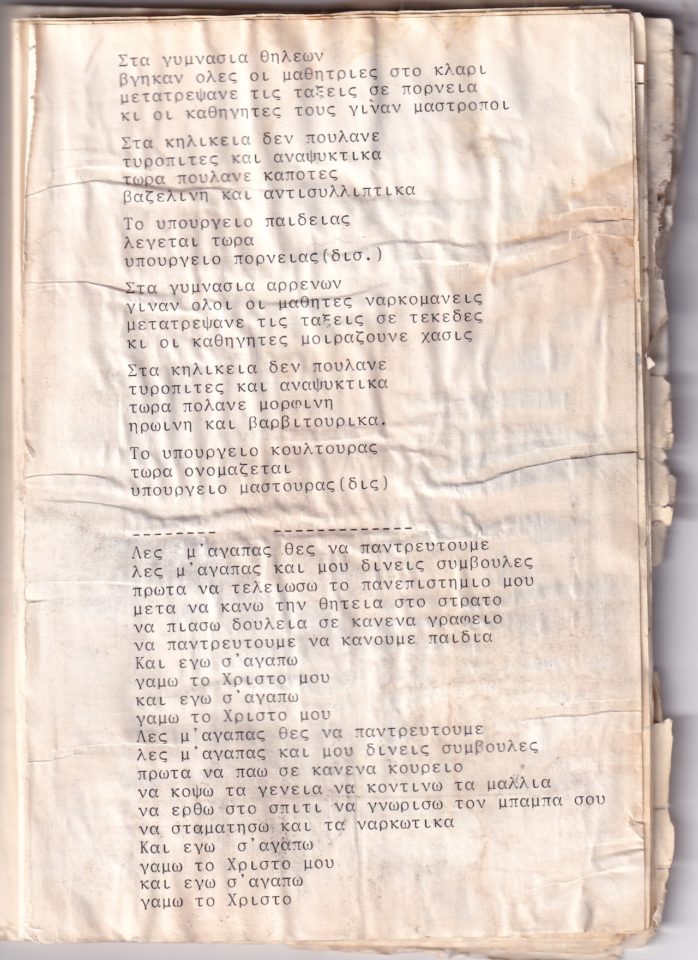 Στα γυμνασια θηλεων
βγηκαν ολες οι μαθητριες στο κλαρι
μετατρεψανε τις ταξεις σε πορνεια
κι οι καθηγητες τους γιναν μαστροποι
Στα κηλικεια δεν πουλανε
τυροπιτες και αναψυκτικα
τωρα πουλανε καποτες
βαζελινη και αντισυλλιπτικα
Το υπουργειο παιδειας
λεγεται τωρα
υπουργειο πορνειας(δισ.)
Στα γυμνασια αρρενων
γιναν ολοι οι μαθητες ναρκομανεις
μετατρεψανε τις ταξεις σε τεκεδες
κι οι καθηγητες μοιραζουνε χασις
Στα κηλικεια δεν πουλανε
τυροπιτες και αναψυκτικα
τωρα πολανε μορφινη
ηρωινη και βαρβιτουρικα.
Το υπουργειο κουλτουρας
τωρα ονομαζεται
υπουργειο μαστουρας(δις)
-------- -------------
Λες μ'αγαπας θες να παντρευτουμε
λες μ'αγαπας και μου δινεις συμβουλες
πρωτα να τελειωσω το πανεπιστημιο μου
μετα να κανω την θητεια στο στρατο
να πιασω δουλεια σε κανενα γραφειο
να παντρευτουμε να κανουμε παιδια
Και εγω σ'αγαπω
γαμω το Χριστο μου
και εγω σ'αγαπω
γαμω το Χριστο μου
Λες μ'αγαπας θες να παντρευτουμε
λες μ'αγαπας και μου δινεις συμβουλες
πρωτα να παω σε κανενα κουρειο
να κοψω τα γενεια να κοντινω τα μαλλια
να ερθω στο σπιτι να γνωρισω τον μπαμπα σου
να σταματησω και τα ναρκωτικα
Και εγω σ'αγαπω
γαμω το Χριστο μου
και εγω σ'αγαπω
γαμω το Χριστο